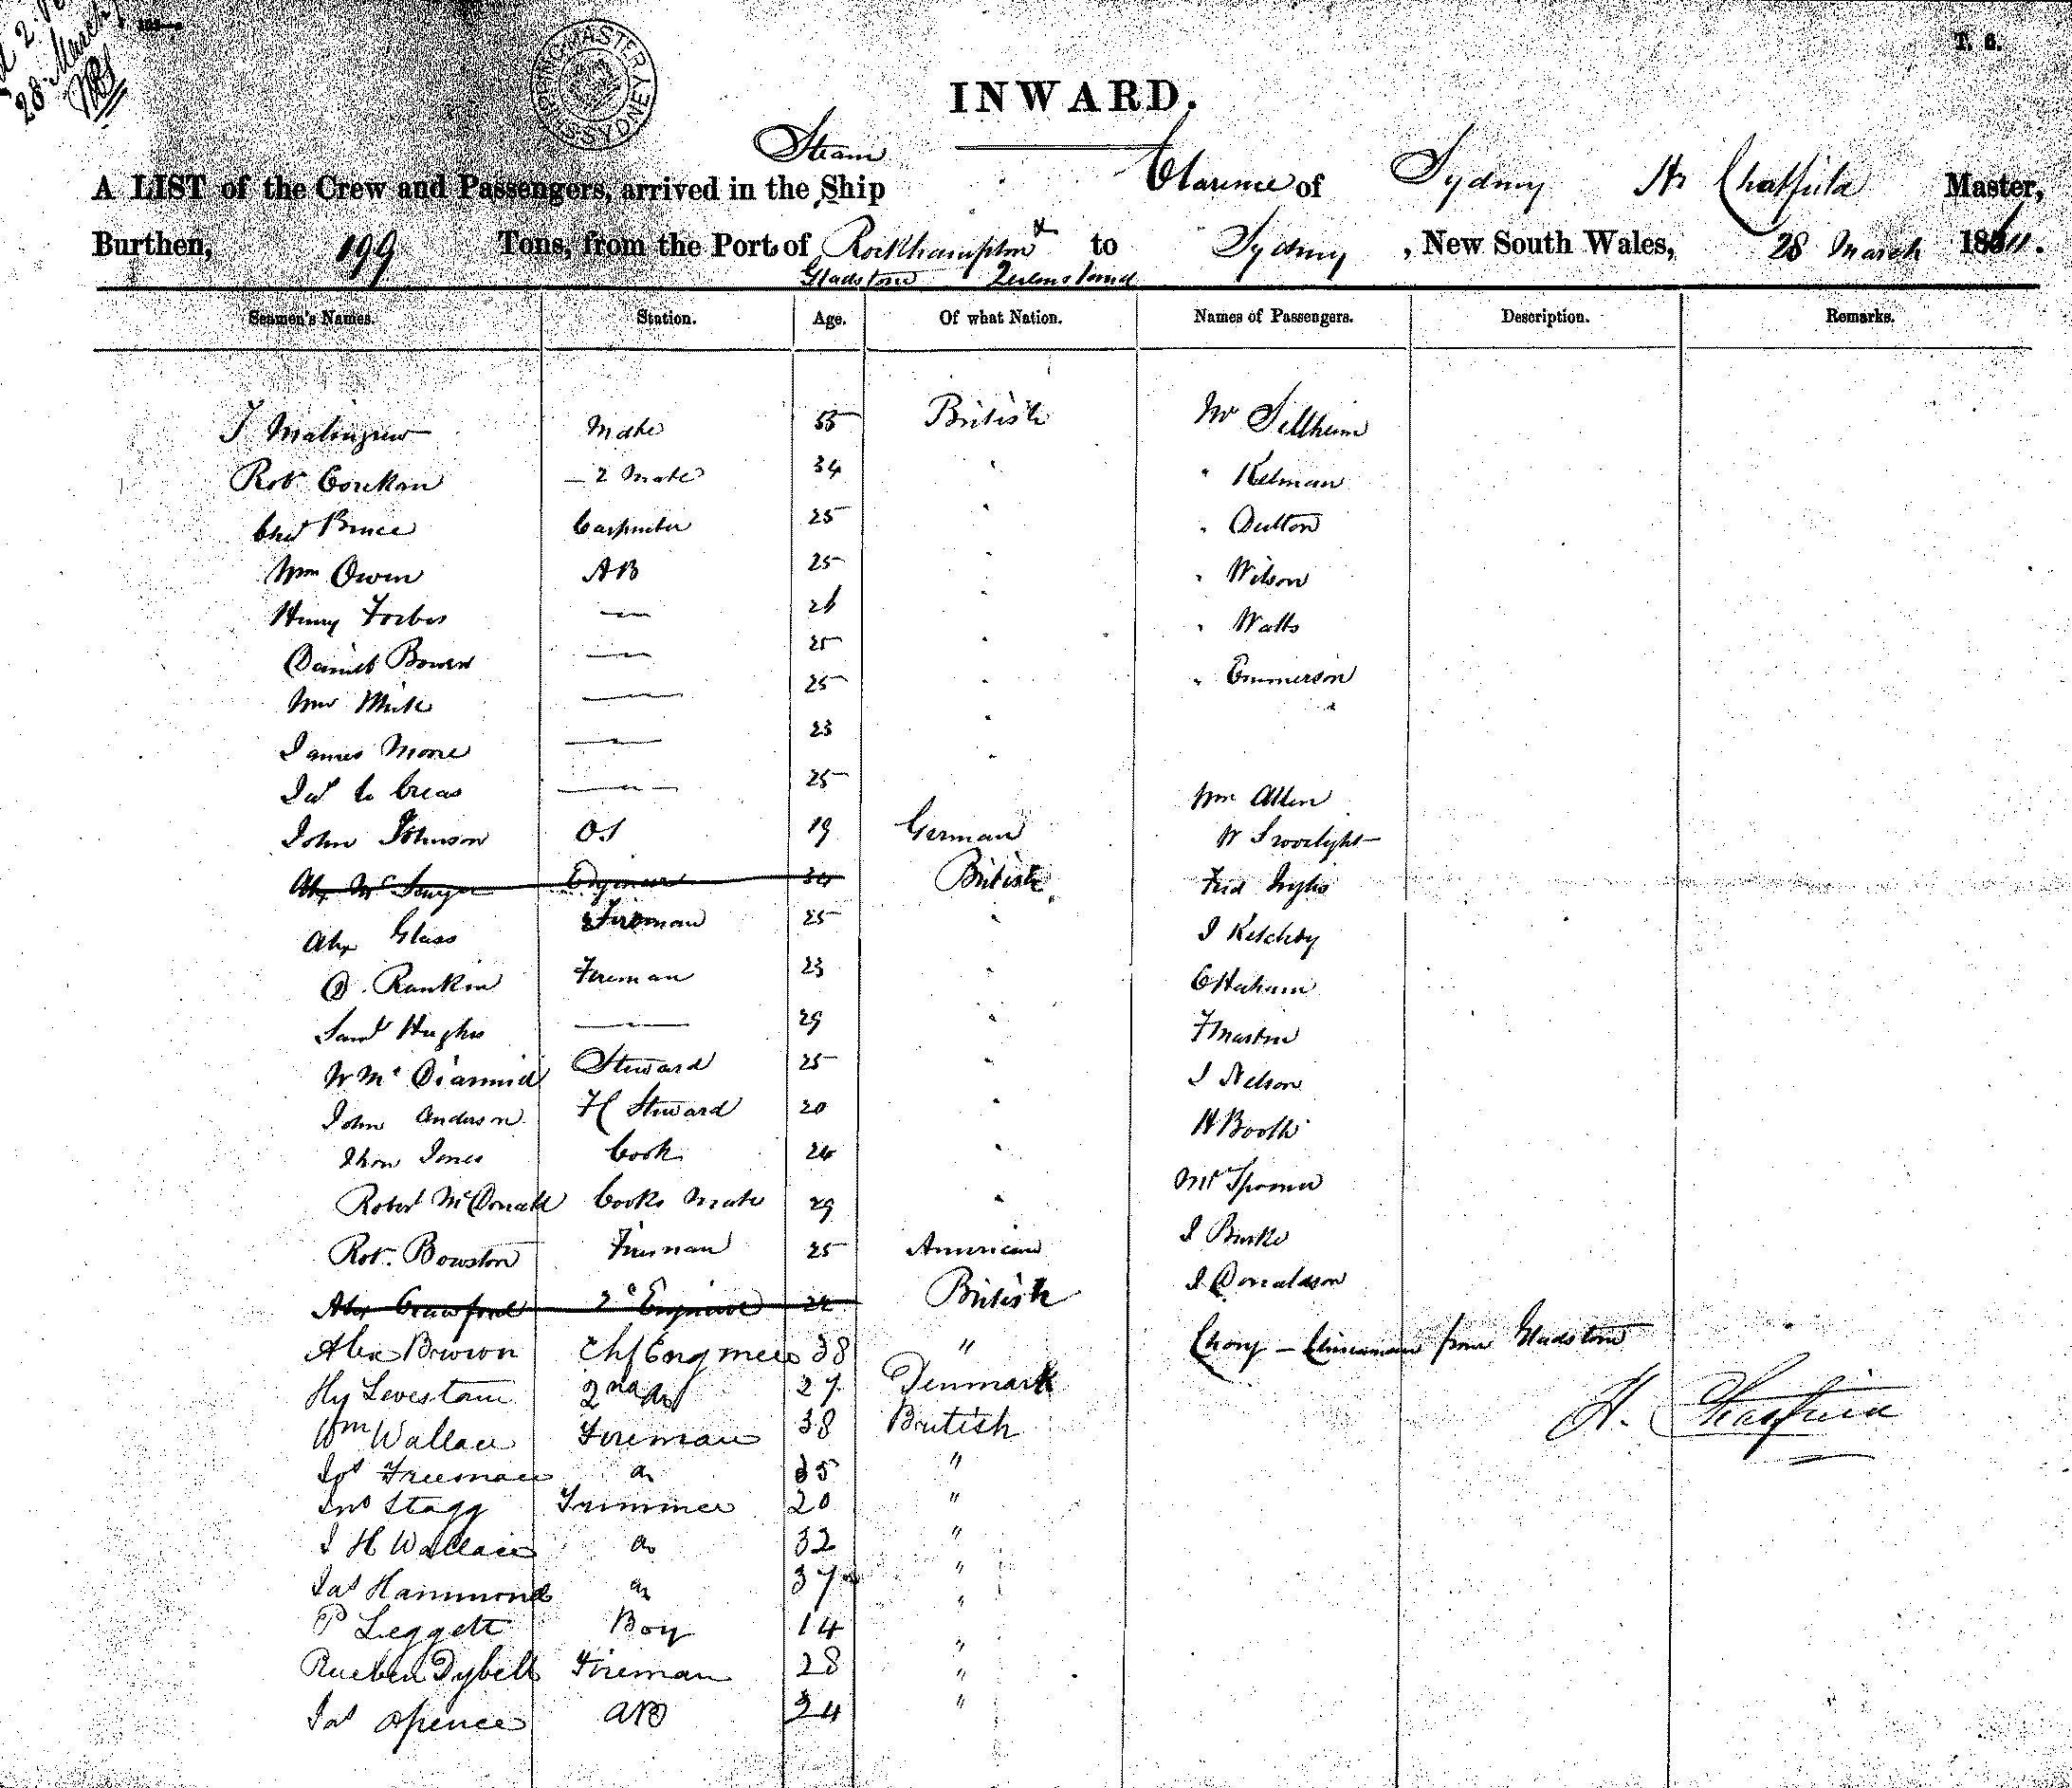 28 March
T. 6.
SHIPPING MASTER SYDNEY
INWARD.
Steam
A LIST of the Crew and Passengers, arrived in the Ship Clarence of Sydney H Chatfield Master,
Burthen, 199 Tons, from the Port of Rockhampton & to Sydney, New South Wales, 28 March 1861.
Gladstone Queensland
Seamen's Names. Station. Age. Of what Nation. Names of Passengers. Description. Remarks.
Mate 55 British Mr Sellheim
Robt 2 Mate 34 " Kelman
Chas Bruce Carpenter 25 " Dutton
Wm Owen AB 25 " Wilson
Henry Forbes — 26 " Watts
Daniel Bowen — 25 " Emmerson
Wm — 25
James Moore — 23
Jas — 25 Wm Allen
John Johnson O.S 19 German W
Alex Mc Engineer 34 British Fred
Alex Glass Fireman 25 J Ketchby
D. Rankin Fireman 23
Saml Hughes — 29 F Martin
W Mc Diarmid Steward 25 J Nelson
John Anderson F C Steward 20 H Booth
Thos Jones Cook 24 Mr Spooner
Robert McDonald Cooks Mate 29 J Burke
Robt. Bowston Fireman 25 American J Donaldson
Alex Crawford 2d Engineer 24 British
Chong – Chinaman from Gladstone
Alex Brown Chf Engineer 38 "
Hy Levestam 2nd do 27 Denmark H. Chatfield
Wm Wallace Fireman 38 British
Jos Freeman do 35 "
Jno Stagg Trimmer 20 "
J H Wallace do 32 "
Jas Hammond do 37 "
P Leggett Boy 14 "
Rueben Dybell Fireman 28 "
Jas Spence AB 24 "